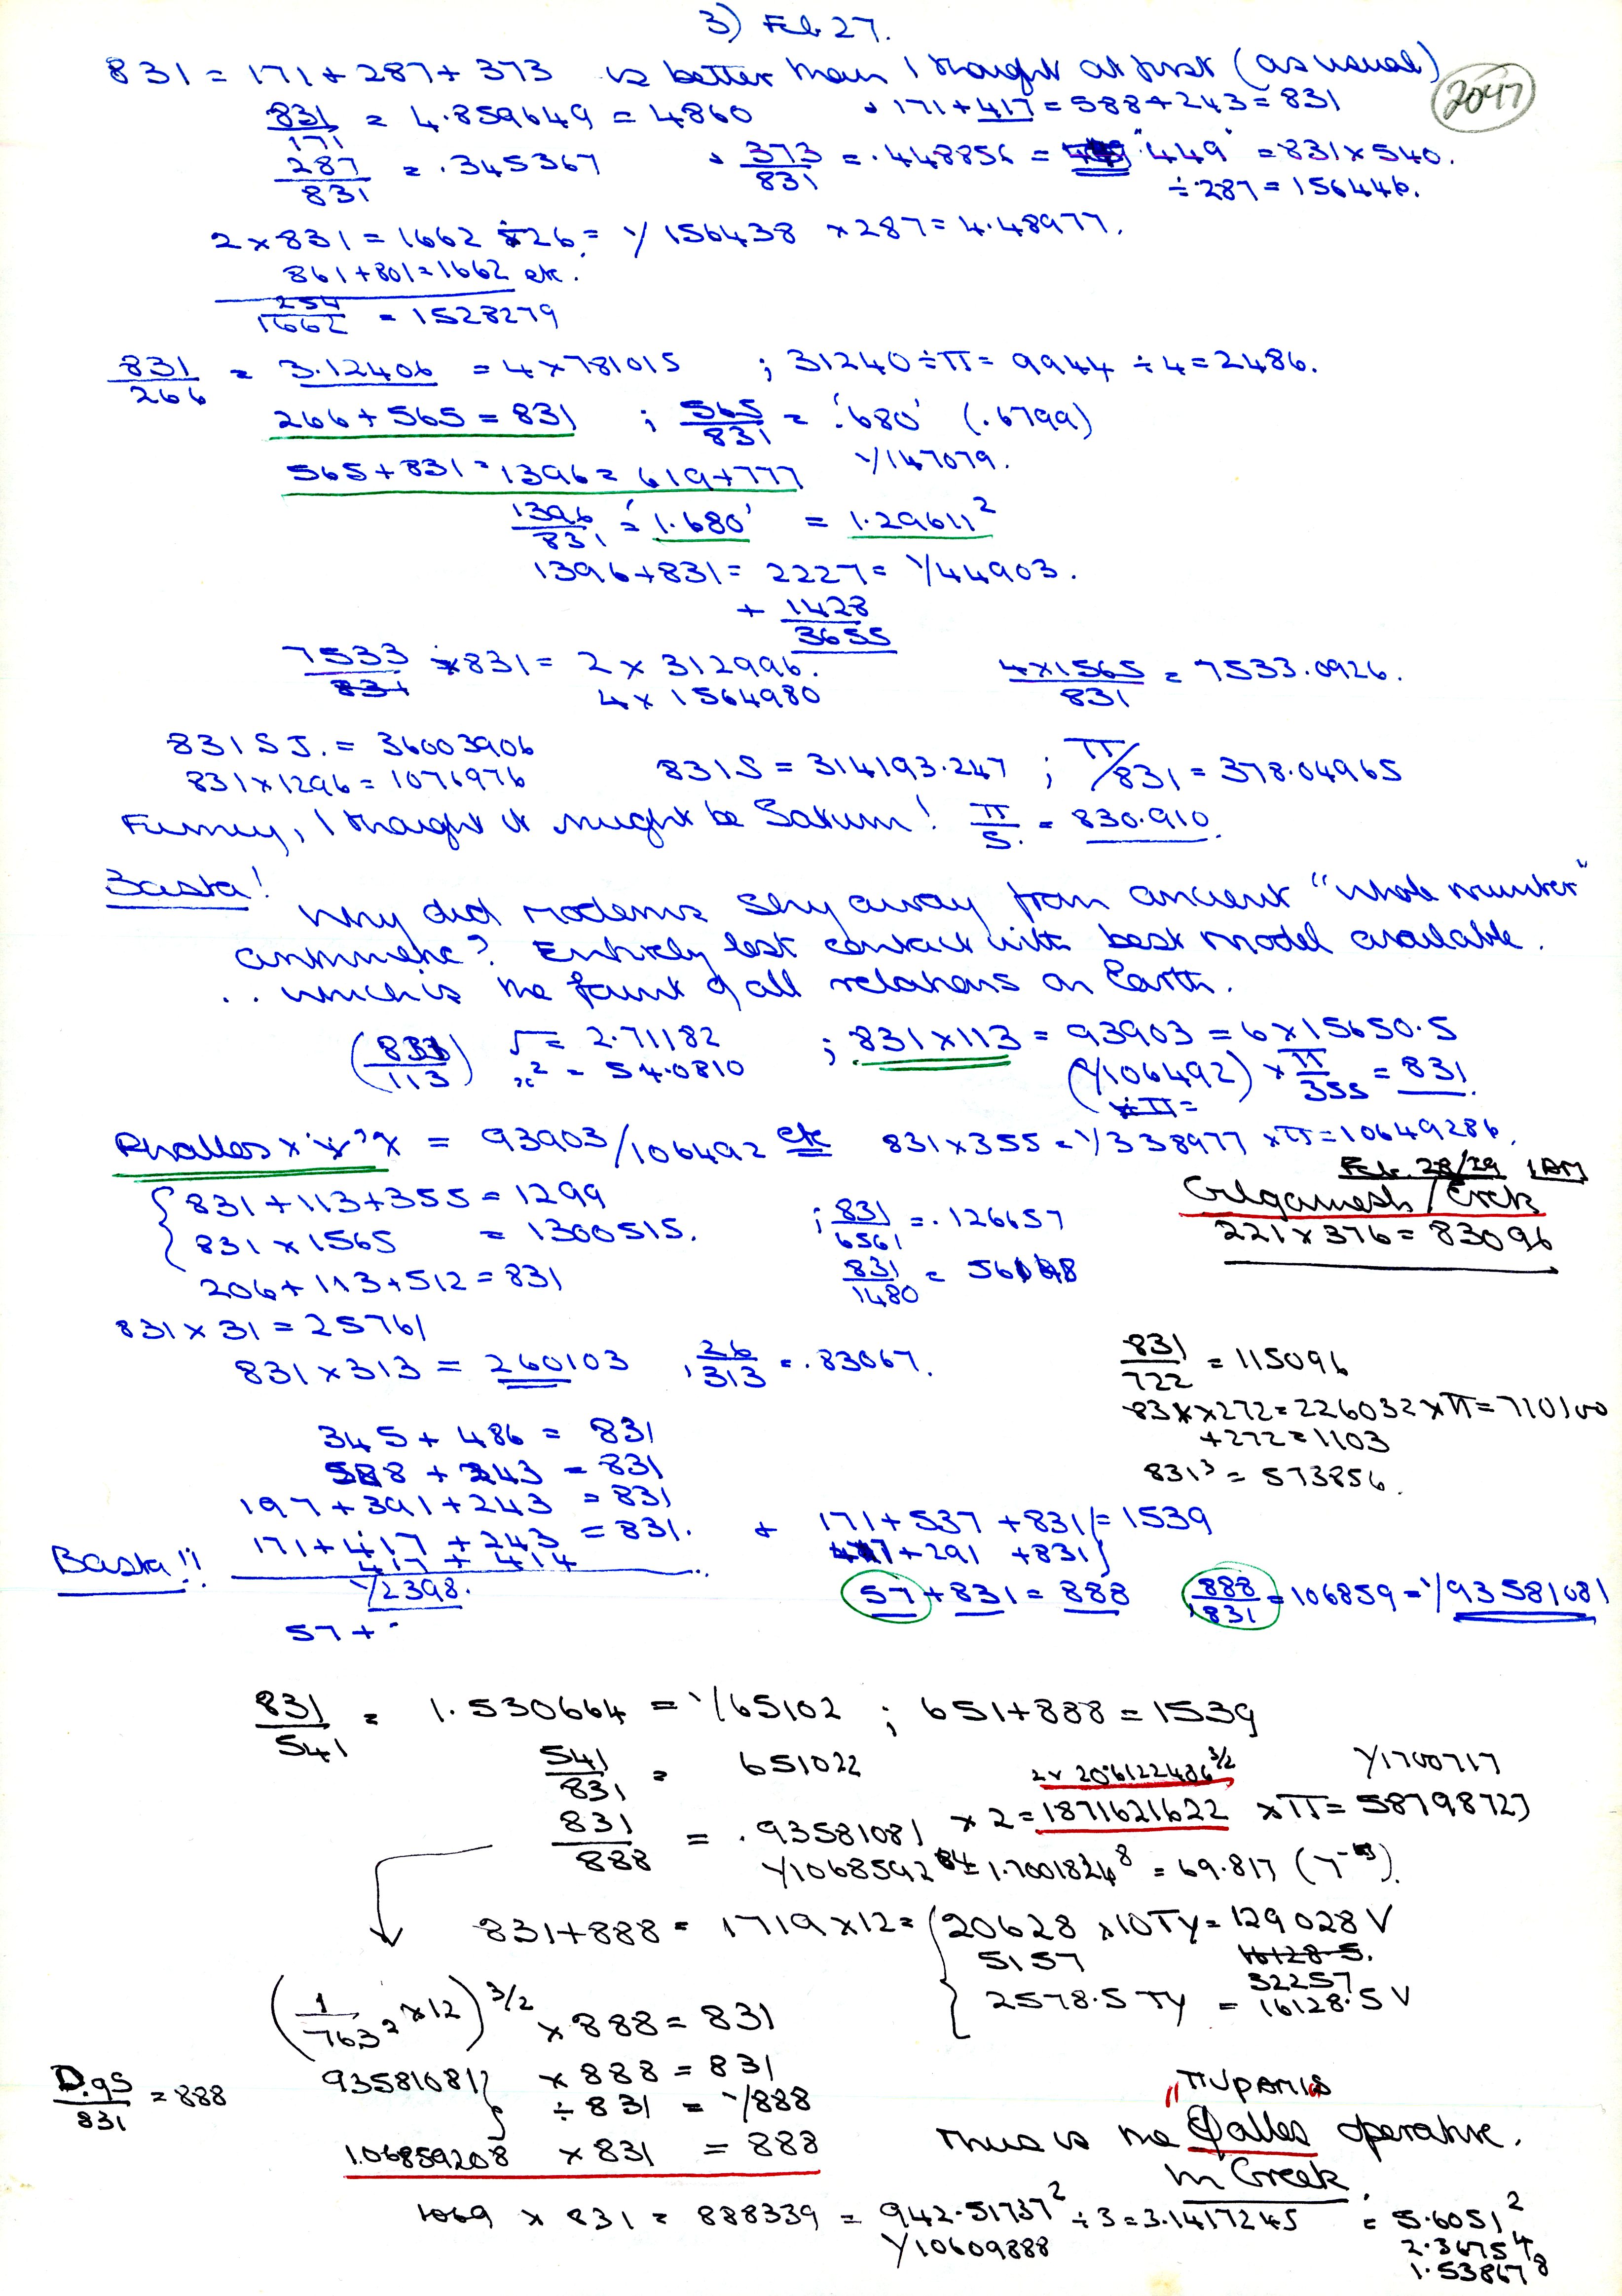 3) Feb. 27.
831 = 171 + 287 + 373 is better than I thought at first (as usual)
2047
831/171 = 4.859649 = 4860 171 + 417 = 588 + 243 = 831
287/831 = .345367 373/831 = .448856 = "449" = 831 x 540.
÷ 287 = 156446.
2 x 831 = 1662 ÷ 26 = 1/156438 x 287 = 4.48977.
861 + 801 = 1662 etc.
254/1662 = 1528279
831/266 = 3.12406 = 4 x 781015 ; 31240 ÷ π = 9944 ÷ 4 = 2486.
266 + 565 = 831 ; 565/831 = '.680' (.6799)
1/147079.
565 + 831 = 1396 = 619 + 777
1396/831 = '1.680' = 1.29611²
1396 + 831 = 2227 = 1/44903.
+ 1428
3655
7533 ÷ 831 = 2 x 312996.
4 x 1564980
4 x 1565/831 = 7533.0926.
831 S J. = 36003906
831 x 1296 = 1076976
831 S = 314193.247 ; π/831 = 378.04965
Funny, I thought it might be Saturn! π/S. = 830.910.
Basta! Why did moderns shy away from ancient "whole number"
arithmetic? Entirely lost contact with best model available.
.. which is the fount of all relations on Earth.
(831/113) √ = 2.71182 ; 831 x 113 = 93903 = 6 x 15650.5
x² = 54.0810 (1/106492) x π/355 = 831.
Phallos x 'x' x = 93903/106492 etc 831 x 355 = 1/338977 x π = 10649286.
Feb. 28/29 1 AM
Gilgamesh / Erek
221 x 376 = 83096
831 + 113 + 355 = 1299
831 x 1565 = 1300515.
206 + 113 + 512 = 831
; 831/6561 = .126657
831/1480 = 56148
831 x 31 = 25761
831 x 313 = 260103 , 26/313 = .83067.
831/722 = 115096
831 x 272 = 226032 x π = 710100
+ 272 = 1103
831³ = 573856.
345 + 486 = 831
588 + 243 = 831
197 + 391 + 243 = 831
171 + 417 + 243 = 831. + 171 + 537 + 831 = 1539
Basta!! 417 + 414 + 291 + 831
1/2398.
57 + 831 = 888 888/831 = 106859 = 1/93581081
57 +
831/541 = 1.530664 = 1/65102 ; 651 + 888 = 1539
541/831 = 651022
2 x 20.6122486 3/2 1/1700717
831/888 = .93581081 x 2 = 1871621622 x π = 58798723
1/10685921.7001824⁸ = 69.817
831 + 888 = 1719 x 12 = 20628 x 10 Ty = 129028 V
5157
32257
2578.5 Ty = 16128.5 V
(1/763² x 12) 3/2 x 888 = 831
D.95/831 = 888
93581081 x 888 = 831
÷ 831 = 1/888
1.06859208 x 831 = 888
This is the Φallos operative.
in Greek.
1069 x 831 = 888339 = 942.51737² ÷ 3 = 3.1417245 = 5.6051²
1/10609888
2.3675⁴
1.53867⁸